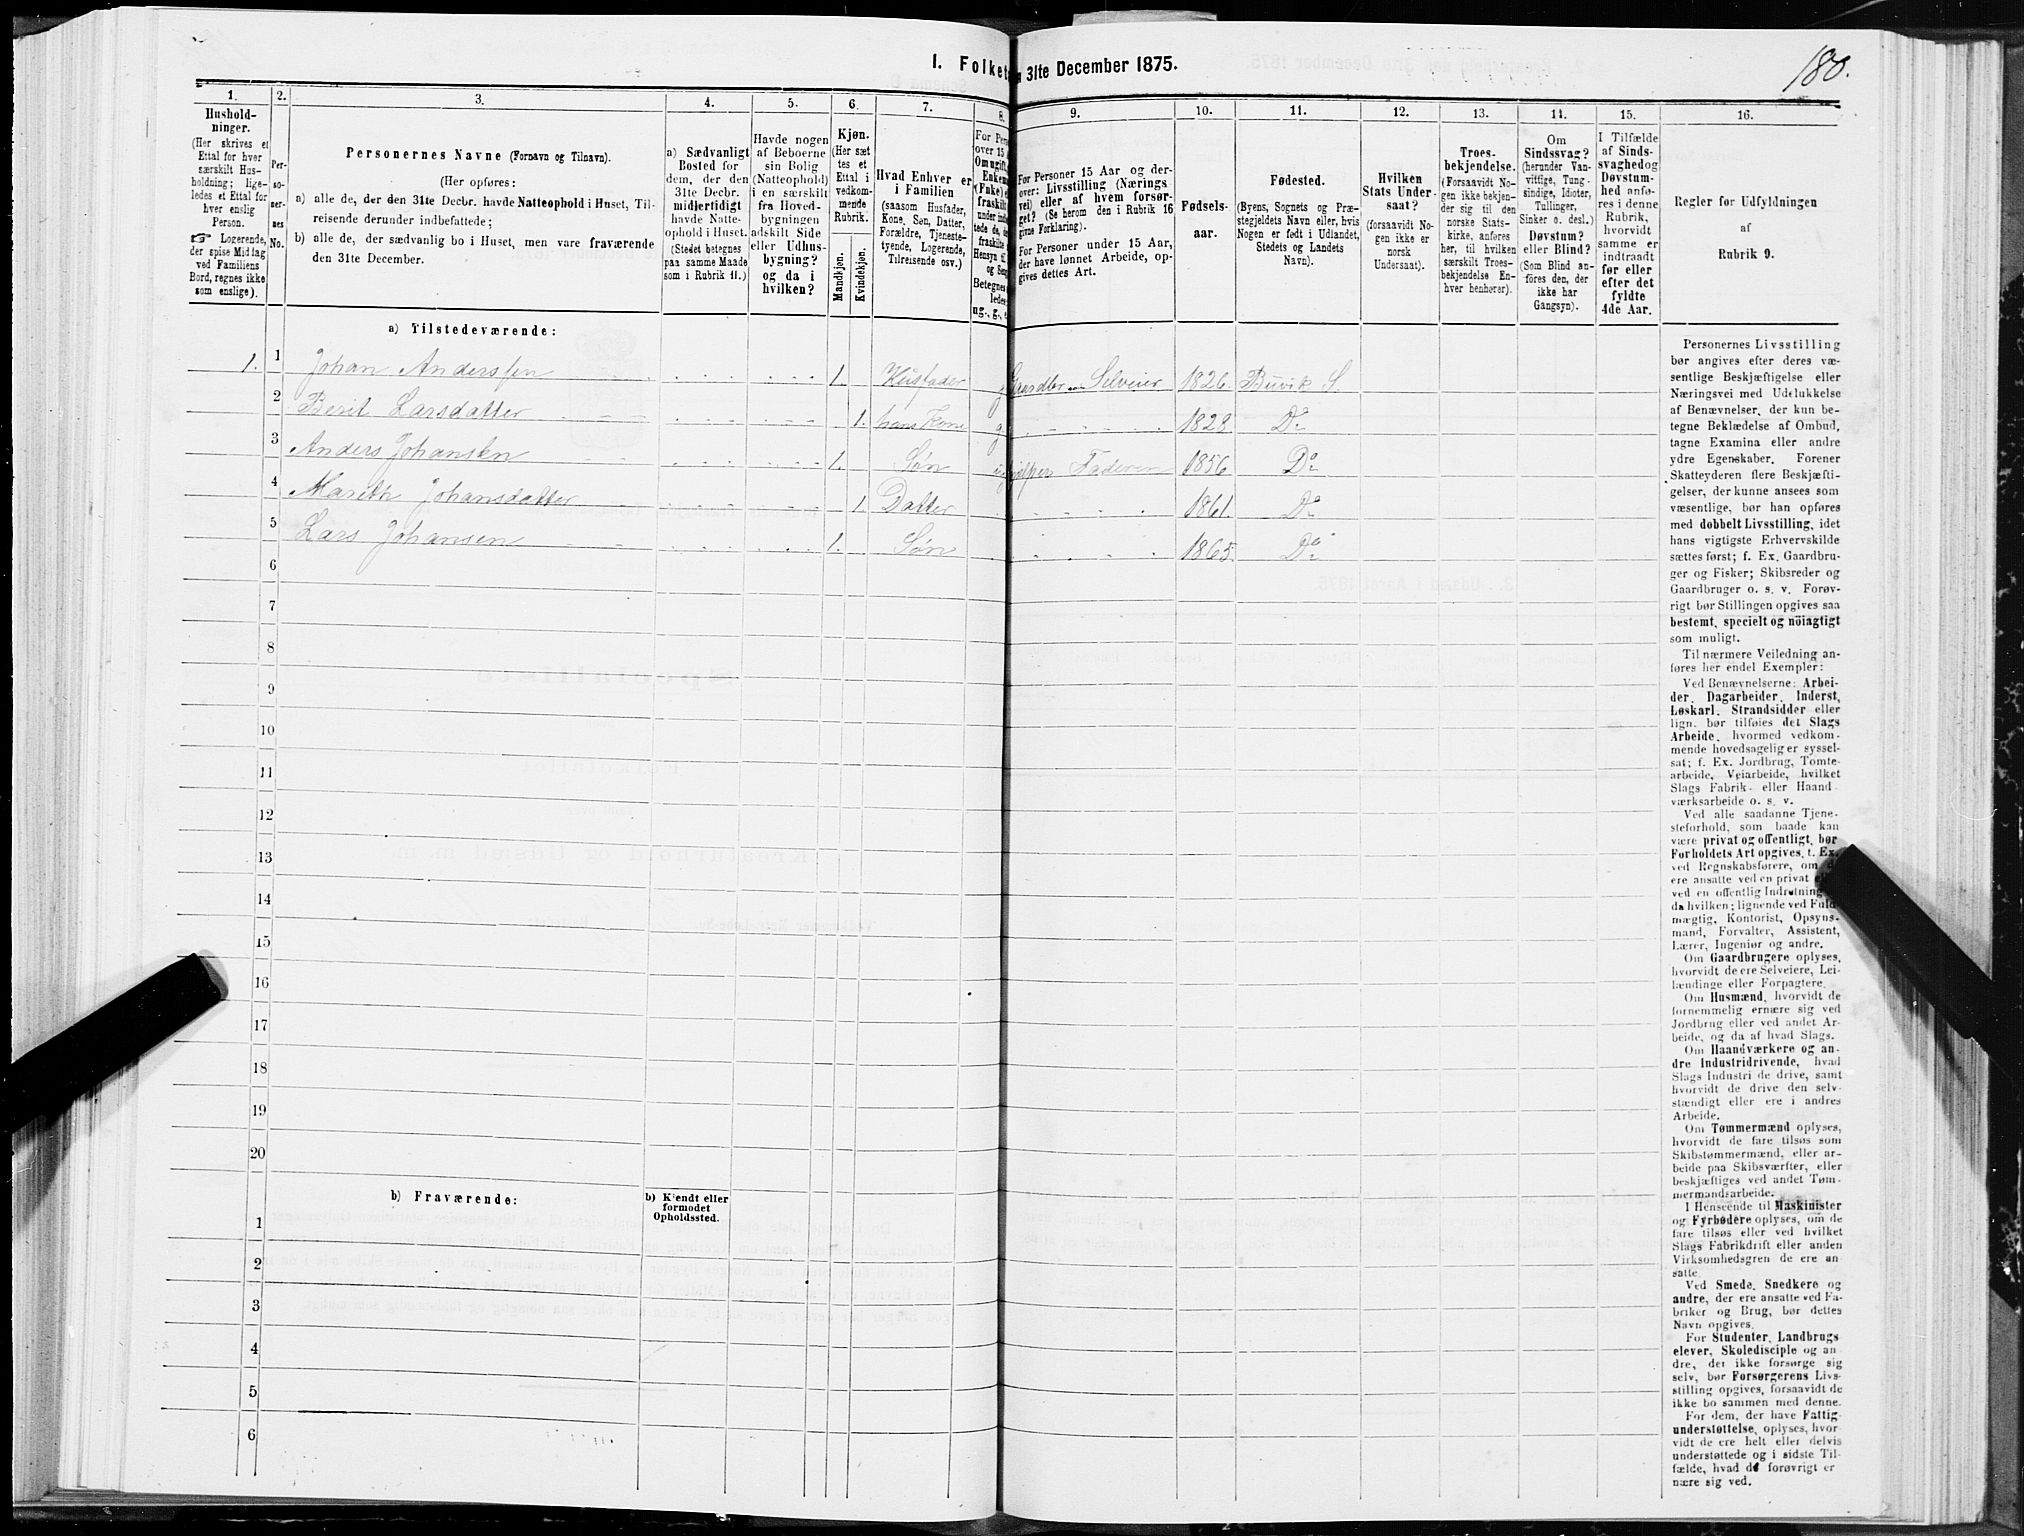 180.
1. Folket
n 31te December 1875.
1.
2.
3.
4.
5.
6.
7.
8.
9.
10.
11.
12.
13.
14.
15.
16.
Hushold-
ninger.
(Her skrives et
Ettal for hver
særskilt Hus-
holdning; lige-
ledes et Ettal for
hver enslig
Person.
☞ Logerende,
der spise Middag
ved Familiens
Bord, regnes ikke
som enslige).
Per-
so-
ner-
nes
No.
Personernes Navne (Fornavn og Tilnavn).
(Her opføres:
a) alle de, der den 31te Decbr. havde Natteophold i Huset, Til-
reisende derunder indbefattede;
b) alle de, der sædvanlig bo i Huset, men vare fraværende
den 31te December.
a) Sædvanligt
Bosted for
dem, der den
31te Decbr.
midlertidigt
havde Natte-
ophold i Huset.
(Stedet betegnes
paa samme Maade
som i Rubrik 11.)
Havde nogen
af Beboerne
sin Bolig
(Natteophold)
i en særskilt
fra Hoved-
bygningen
adskilt Side
eller Udhus-
bygning?
og da i
hvilken?
Kjøn.
(Her sæt
tes et
Ettal i
vedkom-
mende
Rubrik.
Mandkjøn.
Kvindekjøn.
Hvad Enhver er
i Familien
(saasom Husfader,
Kone, Søn, Datter,
Forældre, Tjeneste-
tyende, Logerende,
Tilreisende osv.)
For Pers
over 15
Om ugift,
Enkem
(Fnke)
fraskilt
under ind
tede de,
fraskilte
Hensyn til
og Seng
Betegnes
ledes
ug., g., e
For Personer 15 Aar og der-
over: Livsstilling (Nærings
vei) eller af hvem forsør-
get? (Se herom den i Rubrik 16
givne Forklaring).
For Personer under 15 Aar,
der have lønnet Arbeide, op-
gives dettes Art.
Fødsels-
aar.
Fødested.
(Byens, Sognets og Præ-
stegjeldets Navn eller, hvis
Nogen er født i Udlandet,
Stedets og Landets
Navn).
Hvilken
Stats Under-
saat?
(forsaavidt No-
gen ikke er
norsk
Undersaat).
Troes-
bekjendelse.
(Forsaavidt No-
gen ikke bekjen-
der sig til den
norske Stats-
kirke, anføres
her, til hvilken
særskilt Troes-
bekjendelse En-
hver henhører).
Om
Sindssvag?
(herunder Van-
vittige, Tung-
sindige, Idioter,
Tullinger,
Sinker o. desl.)
Døvstum?
eller Blind?
(Som Blind an-
føres den, der
ikke har
Gangsyn).
I Tilfælde
af Sinds-
svaghedog
Døvstum-
hed anfø-
res i denne
Rubrik,
hvorvidt
samme er
indtraadt
før eller
efter det
fyldte
4de Aar.
Regler for Udfyldningen
af
Rubrik 9.
a) Tilstedeværende:
1. 1 Johan Anderssen 1. Husfader g Gaardbr og Selveier 1826. Buvik S.
2 Berit Larsdatter 1. hans Kone g. 1828 Do
3 Anders Johansen 1. Søn ug hjælper Faderen 1856 Do
4 Marith Johansdatter 1. Datter 1861. Do
5 Lars Johansen 1. Søn 1865. Do
6
7
8
9
10
11
12
13
14
15
16
17
18
19
20
b) Fraværende:
b) Kjendt eller
formodet
Opholdssted.
1
2
3
4
5
6
Personernes Livsstilling
bør angives efter deres væ-
sentlige Beskjæftigelse eller
Næringsvei med Udelukkelse
af Benævnelser, der kun be-
tegne Beklædelse af Ombud,
tagne Examina eller andre
ydre Egenskaber. Forener
Skatteyderen flere Beskjæfti-
gelser, der kunne ansees som
væsentlige, bør han opføres
med dobbelt Livsstilling, idet
hans vigtigste Erhvervskilde
sættes først; f. Ex. Gaardbru-
ger og Fisker; Skibsreder og
Gaardbruger o. s. v. Forøv-
rigt bør Stillingen opgives saa
bestemt, specielt og nöiagtigt
som muligt.
Til nærmere Veiledning an-
føres her endel Exempler:
Ved Benævnelserne: Arbei-
der, Dagarbeider, Inderst,
Løskarl, Strandsidder eller
lign. bør tilføies det Slags
Arbeide, hvormed vedkom-
mende hovedsagelig er syssel-
sat; f. Ex. Jordbrug, Tomte-
arbeide, Veiarbeide, hvilket
Slags Fabrik- eller Haand-
værksarbeide o. s. v.
Ved alle saadanne Tjene-
steforhold, som baade kan
være privat og offentligt, bør
Forholdets Art opgives, t. Ex.
ved Regnskabsførere, om de
ere ansatte ved en privat eller
ved en offentlig Indretning og
da hvilken; lignende ved Fuld-
mægtig, Kontorist, Opsyns-
mand, Forvalter, Assistent,
Lærer, Ingeniør og andre.
Om Gaardbrugere oplyses,
hvorvidt de ere Selveiere, Lei-
lændinge eller Forpagtere.
Om Husmænd, hvorvidt de
fornemmelig ernære sig ved
Jordbrug eller ved andet Ar-
beide, og da af hvad Slags.
Om Haandværkere og an-
dre Industridrivende, hvad
Slags Industri de drive, samt
hvorvidt de drive den selv-
stændigt eller ere i andres
Arbeide.
Om Tømmermænd oplyses,
hvorvidt de fare tilsøs som
Skibstømmermænd, eller ar-
beide paa Skibsværfter, eller
beskjæftiges ved andet Tøm-
mermandsarbeide.
I Henseende til Maskinister
og Fyrbødere oplyses, om de
fare tilsøs eller ved hvilket
Slags Fabrikdrift eller anden
Virksomhedsgren de ere an-
satte.
Ved Smede, Snedkere og
andre, der ere ansatte ved Fa-
briker og Brug, bør dettes
Navn opgives.
For Studenter, Landbrugs
elever, Skoledisciple og an
dre, der ikke forsørge sig
selv, bør Forsørgerens Livs-
stilling opgives, forsaavidt de
ikke bo sammen med denne.
For dem, der have Fattig-
understøttelse, oplyses, hvor-
vidt de ere helt eller delvis
understøttede og i sidste Til-
fælde, hvad de forøvrigt er
nære sig ved.